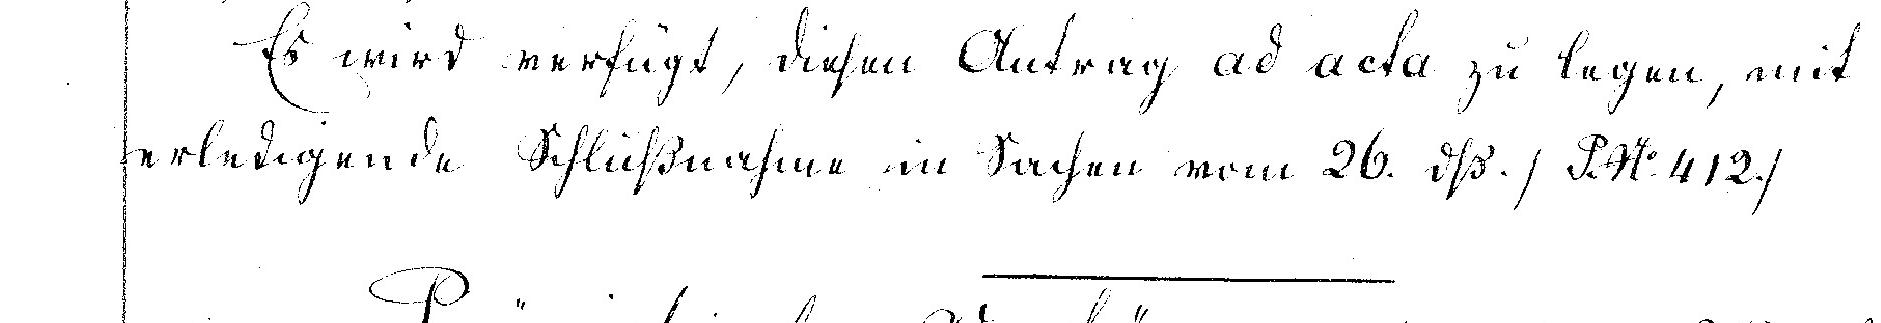 Es wird verfügt, diesen Antrag ad acta zu legen, mit
erledigende Schlußnahme in Sachen vom 26. dß. / P. No. 412./